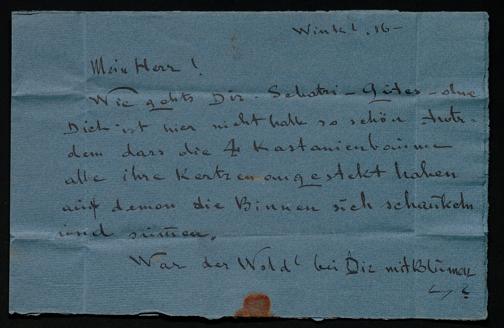 Winkl. 16-
Mein Herr!
Wie gehts Dir - Schatzi - Gutes - ohne
Dich ist hier nicht halb so schön trotz-
dem dass die 4 Kastanienbäume
alle ihre Kertzen angestekt haben
auf denen die Binnen sich schaukeln
und summen.
War der Wald bei Dir mit Blumen